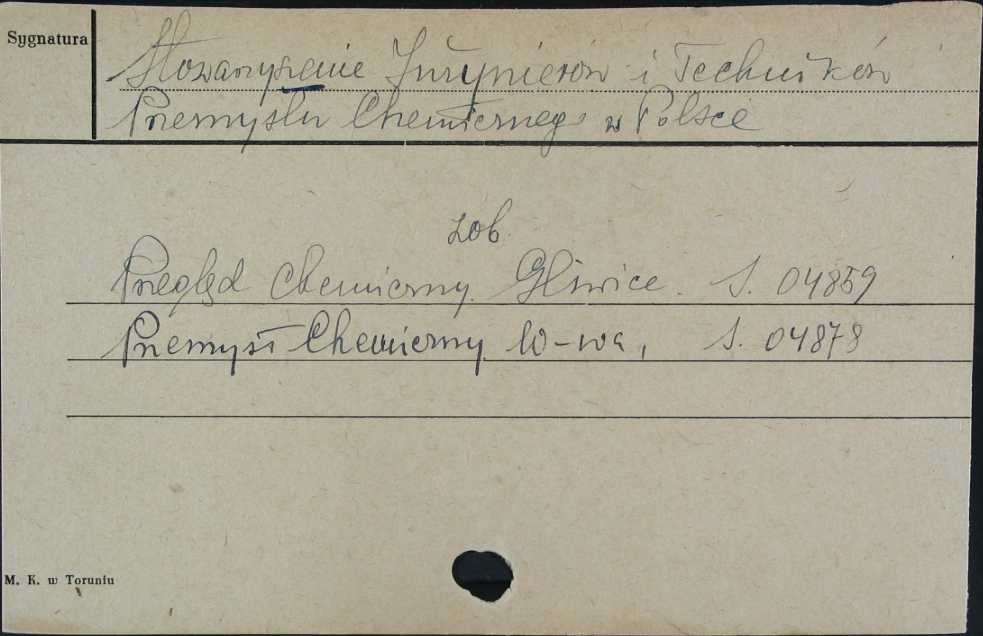 Sygnatura
Stowarzyszenie Inżynierów i Techników
Przemysłu Chemicznego w Polsce
zob.
Przegląd Chemiczny. Gliwice. S. 04859
Przemysł Chemiczny W-wa, S. 04878
M. K. w Toruniu